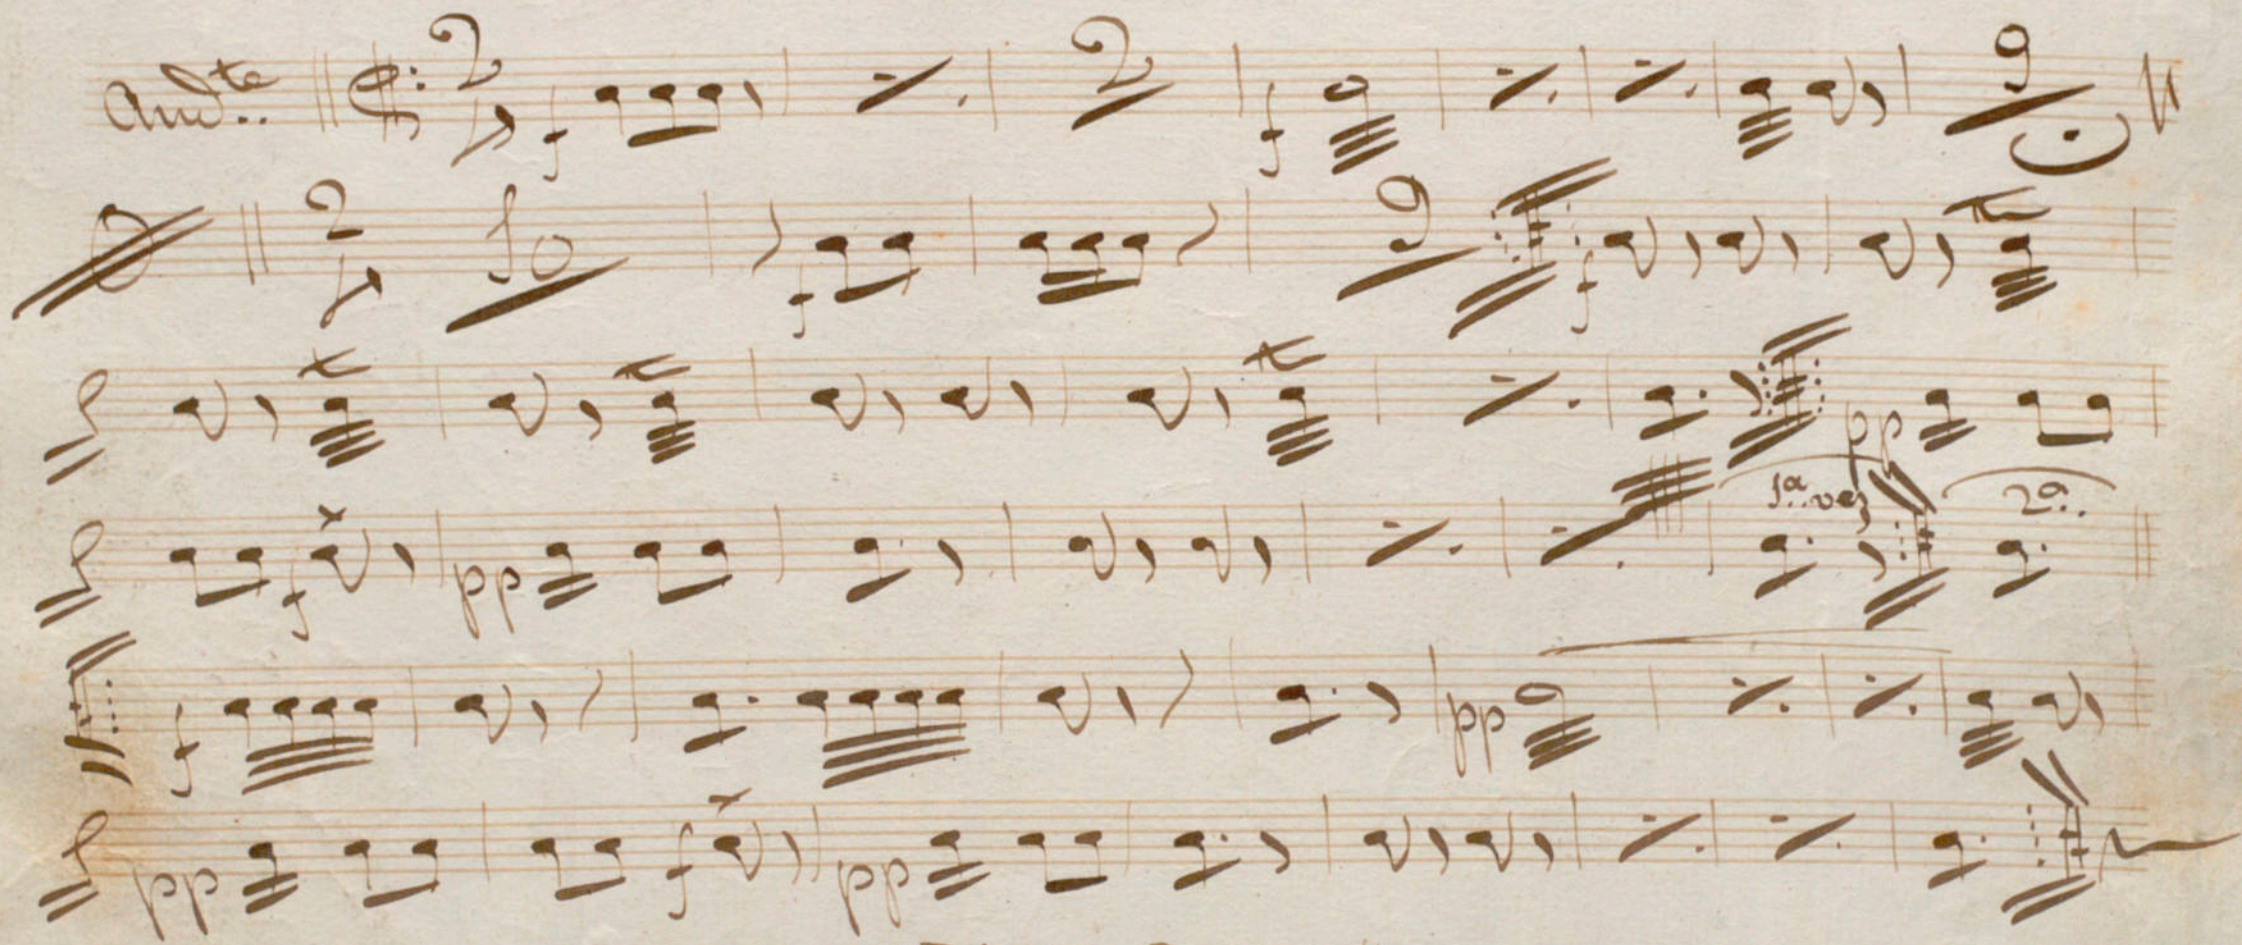 And.te 2 4 f 2 f 9
2 4 10 f 9 f
pp
f pp 1.a vez 2.a
f pp
pp f pp